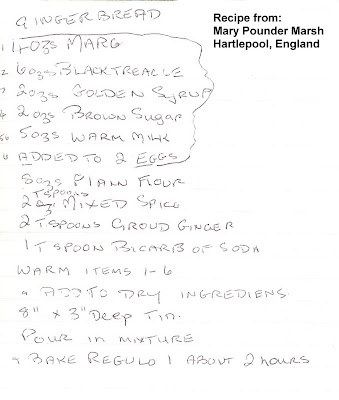 GINGERBREAD
Recipe from:
Mary Pounder Marsh
Hartlepool, England
1 4OZS MARG
2 6OZS BLACK TREACLE
3 2OZS GOLDEN SYRUP
4 2OZS BROWN SUGAR
5 5OZS WARM MILK
6 ADDED TO 2 EGGS
8OZS PLANN FLOUR
2 TSPOONS MIXED SPICE
2 TSPOONS GROUD GINGER
1 TSPOON BICARB OF SODA
WARM ITEMS 1-6
ADD TO DRY INGREDIENS
8" x 3" DEEP TIN.
POUR IN MIXTURE
BAKE REGULO 1 ABOUT 2 HOURS